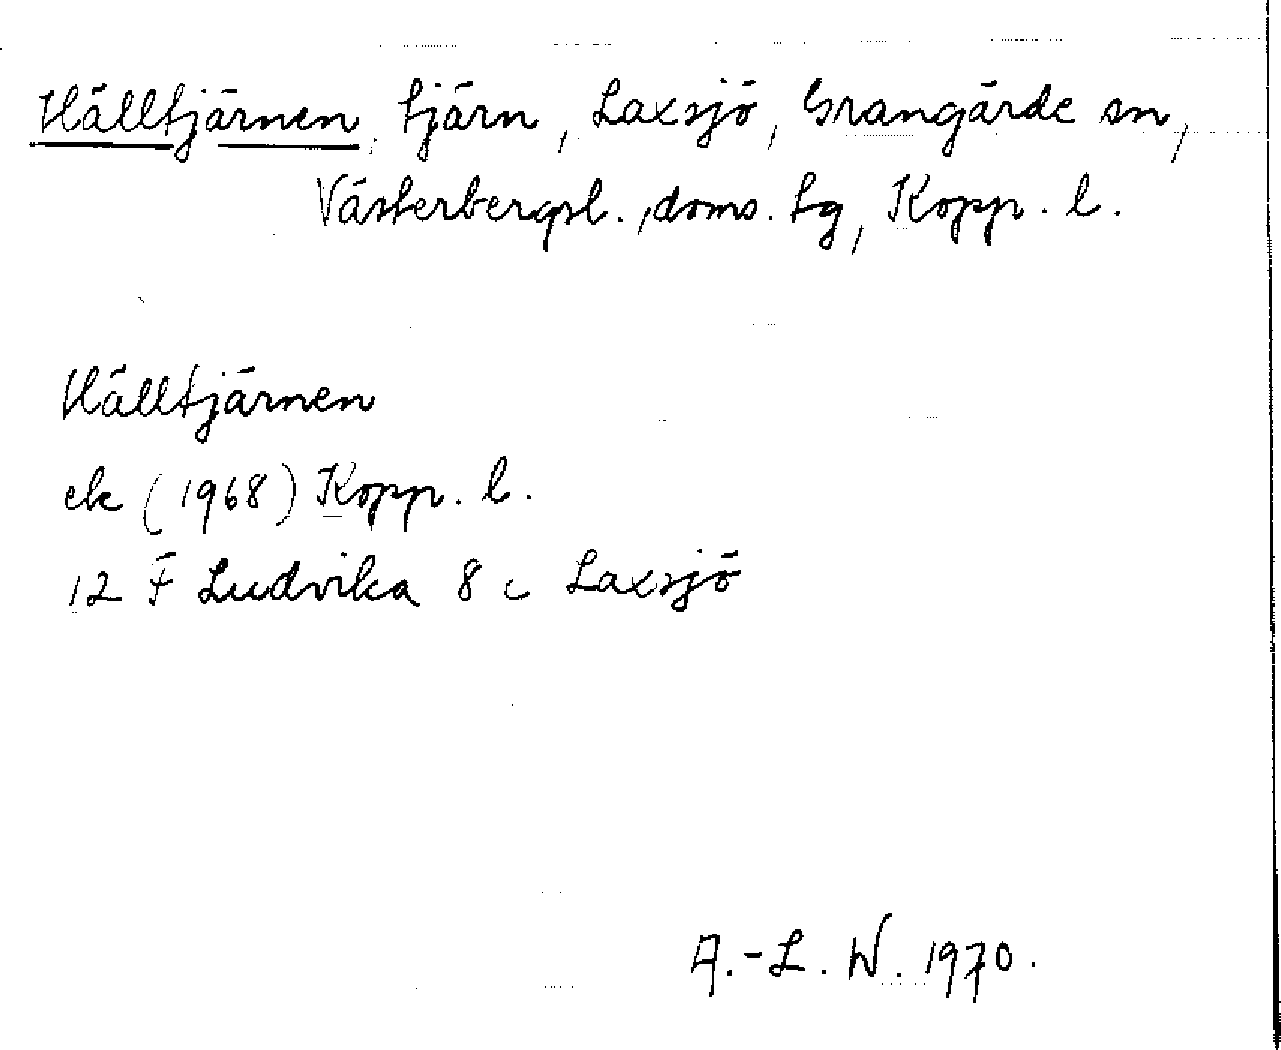 Hälltjärnen, tjärn, Laxsjö, Grangärde sn,
Västerbergsl., doms. tg, Kopp. l.
Hälltjärnen
ek (1968) Kopp. l.
12 F Ludvika 8 c Laxsjö
A.-L. W. 1970.